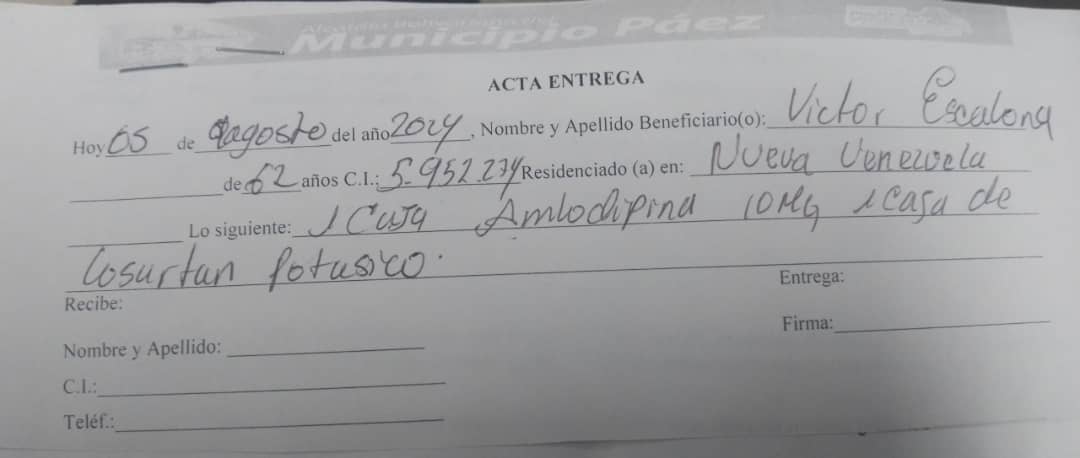 Alcaldía Bolivariana del
Municipio Páez
ACTA ENTREGA
Hoy 05 de agosto del año 2024, Nombre y Apellido Beneficiario(o): Victor Escalona
de 62 años C.I.: 5.952.274 Residenciado (a) en: Nueva Venezuela
Lo siguiente: 1 Caja Amlodipina 10 Mg 1 Casa de
Losurtan Potusico.
Recibe:
Entrega:
Nombre y Apellido:
Firma:
C.I.:
Teléf.: